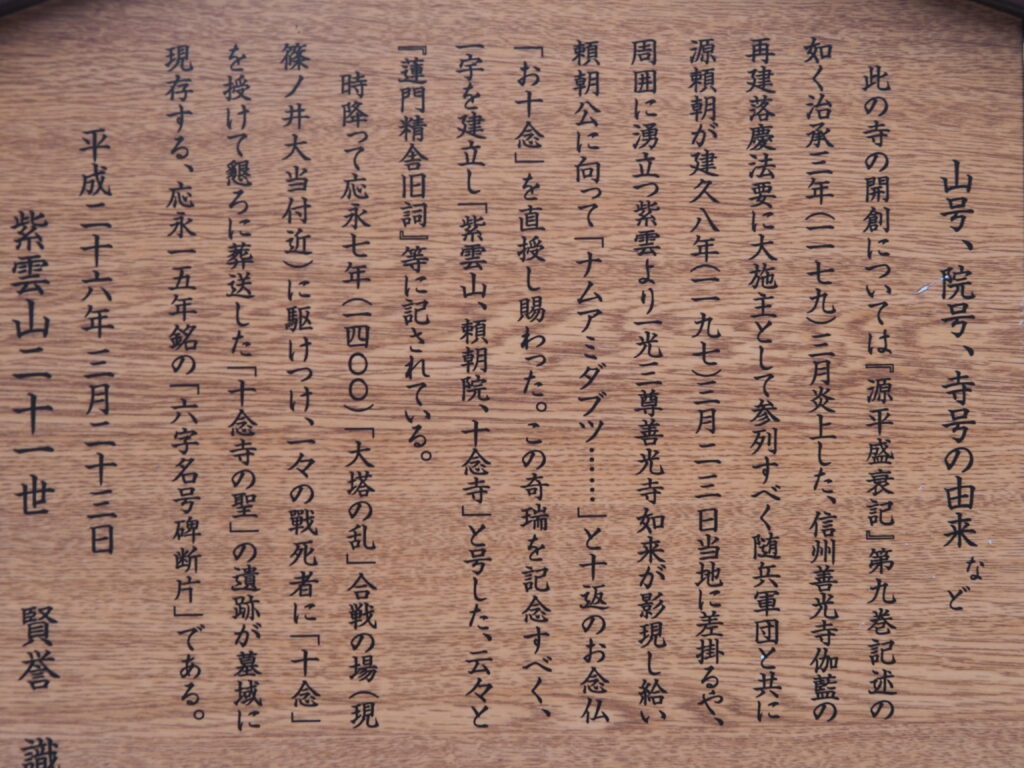 山号、院号、寺号の由来など
此の寺の開創については『源平盛衰記』第九巻記述の
如く治承三年(一一七九)三月炎上した、信州善光寺伽藍の
再建落慶法要に大施主として参列すべく随兵軍団と共に
源頼朝が建久八年(一一九七)三月二三日当地に差掛るや、
周囲に湧立つ紫雲より一光三尊善光寺如来が影現し給い
頼朝公に向って「ナムアミダブツ……」と十返のお念仏
「お十念」を直授し賜わった。この奇瑞を記念すべく、
一宇を建立し「紫雲山、頼朝院、十念寺」と号した、云々と
『蓮門精舎旧詞』等に記されている。
時降って応永七年(一四〇〇)「大塔の乱」合戦の場(現
篠ノ井大当付近)に駆けつけ、一々の戦死者に「十念」
を授けて懇ろに葬送した「十念寺の聖」の遺跡が墓域に
現存する、応永一五年銘の「六字名号碑断片」である。
平成二十六年三月二十三日
紫雲山二十一世 賢誉 識